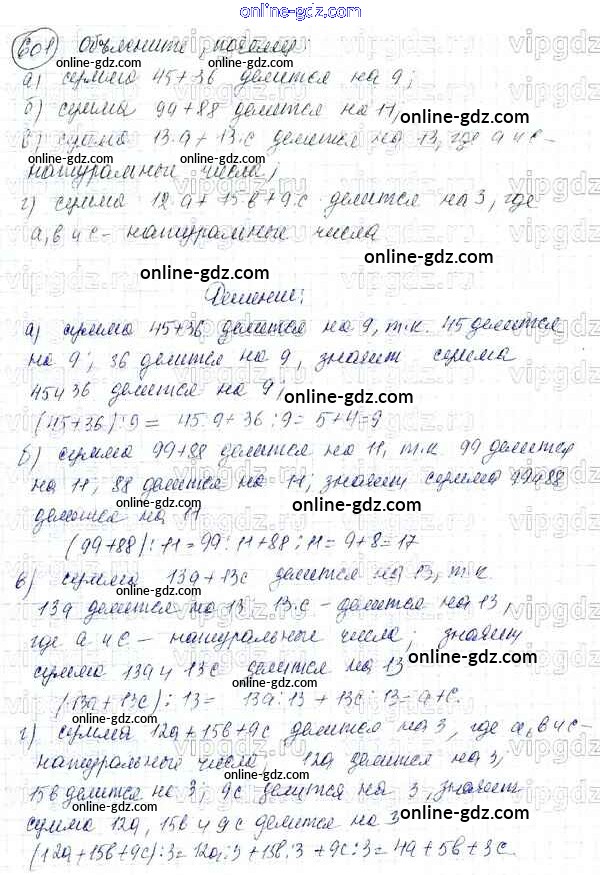 online-gdz.com
601 Объясните, почему:
online-gdz.com
а) сумма 45+36 делится на 9;
б) сумма 99+88 делится на 11
online-gdz.com
в) сумма 13·а+13·с делится на 13, где а и с-
online-gdz.com
натуральные числа;
г) сумма 12·а+15в+9·с делится на 3, где
а, в и с - натуральные числа
online-gdz.com
online-gdz.com
Решение:
а) сумма 45+36 делится на 9, т.к. 45 делится
на 9, 36 делится на 9, значит сумма
45 и 36 делится на 9;
online-gdz.com
(45+36):9= 45:9+36:9=5+4=9
online-gdz.com
б) сумма 99+88 делится на 11, т.к. 99 делится
на 11, 88 делится на 11; значит сумма 99 и 88
online-gdz.com
делится на 11
(99+88):11=99:11+88:11=9+8=17
в) сумма 13а+13с делится на 13, т.к.
13а делится на 13, 13·с - делится на 13,
online-gdz.com
где а и с - натуральные числа; значит
online-gdz.com
сумма 13а и 13с делится на 13
online-gdz.com
(13а+13с):13= 13а:13+13с:13=а+с.
г) сумма 12а+15в+9с делится на 3, где а, в и с-
online-gdz.com
натуральные числа, 12а делится на 3,
online-gdz.com
15в делится на 3; 9с делится на 3, значит
сумма 12а, 15в и 9с делится на 3
online-gdz.com
online-gdz.com
(12а+15в+9с):3=12а:3+15в:3+9с:3=4а+5в+3с.
vipgdz.ru